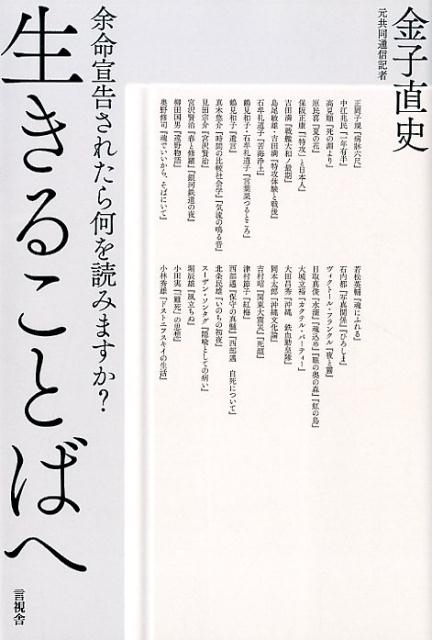 金子直史
元共同通信記者
正岡子規『病牀六尺』
中江兆民『一年有半』
高見順『死の淵より』
原民喜『夏の花』
保阪正康『「特攻」と日本人』
吉田満『戦艦大和ノ最期』
島尾敏雄・吉田満『特攻体験と戦後』
石牟礼道子『苦海浄土』
鶴見和子・石牟礼道子『言葉果つるところ』
鶴見和子『遺言』
真木悠介『時間の比較社会学』『気流の鳴る音』
見田宗介『宮沢賢治』
宮沢賢治『春と修羅』『銀河鉄道の夜』
柳田国男『遠野物語』
奥野修司『魂でもいいから、そばにいて』
若松英輔『魂にふれる』
石内都『写真関係』『ひろしま』
ヴィクトール・フランクル『夜と霧』
目取真俊『水滴』『魂込め』『眼の奥の森』『虹の鳥』
大城立裕『カクテル・パーティー』
大田昌秀『沖縄 鉄血勤皇隊』
岡本太郎『沖縄文化論』
吉村昭『関東大震災』『死顔』
津村節子『紅梅』
西部邁『保守の真髄』『西部邁 自死について』
北條民雄『いのちの初夜』
スーザン・ソンタグ『隠喩としての病い』
堀辰雄『風立ちぬ』
小田実『「難死」の思想』
小林秀雄『ドストエフスキイの生活』
余命宣告されたら何を読みますか?
生きることばへ
言視舎